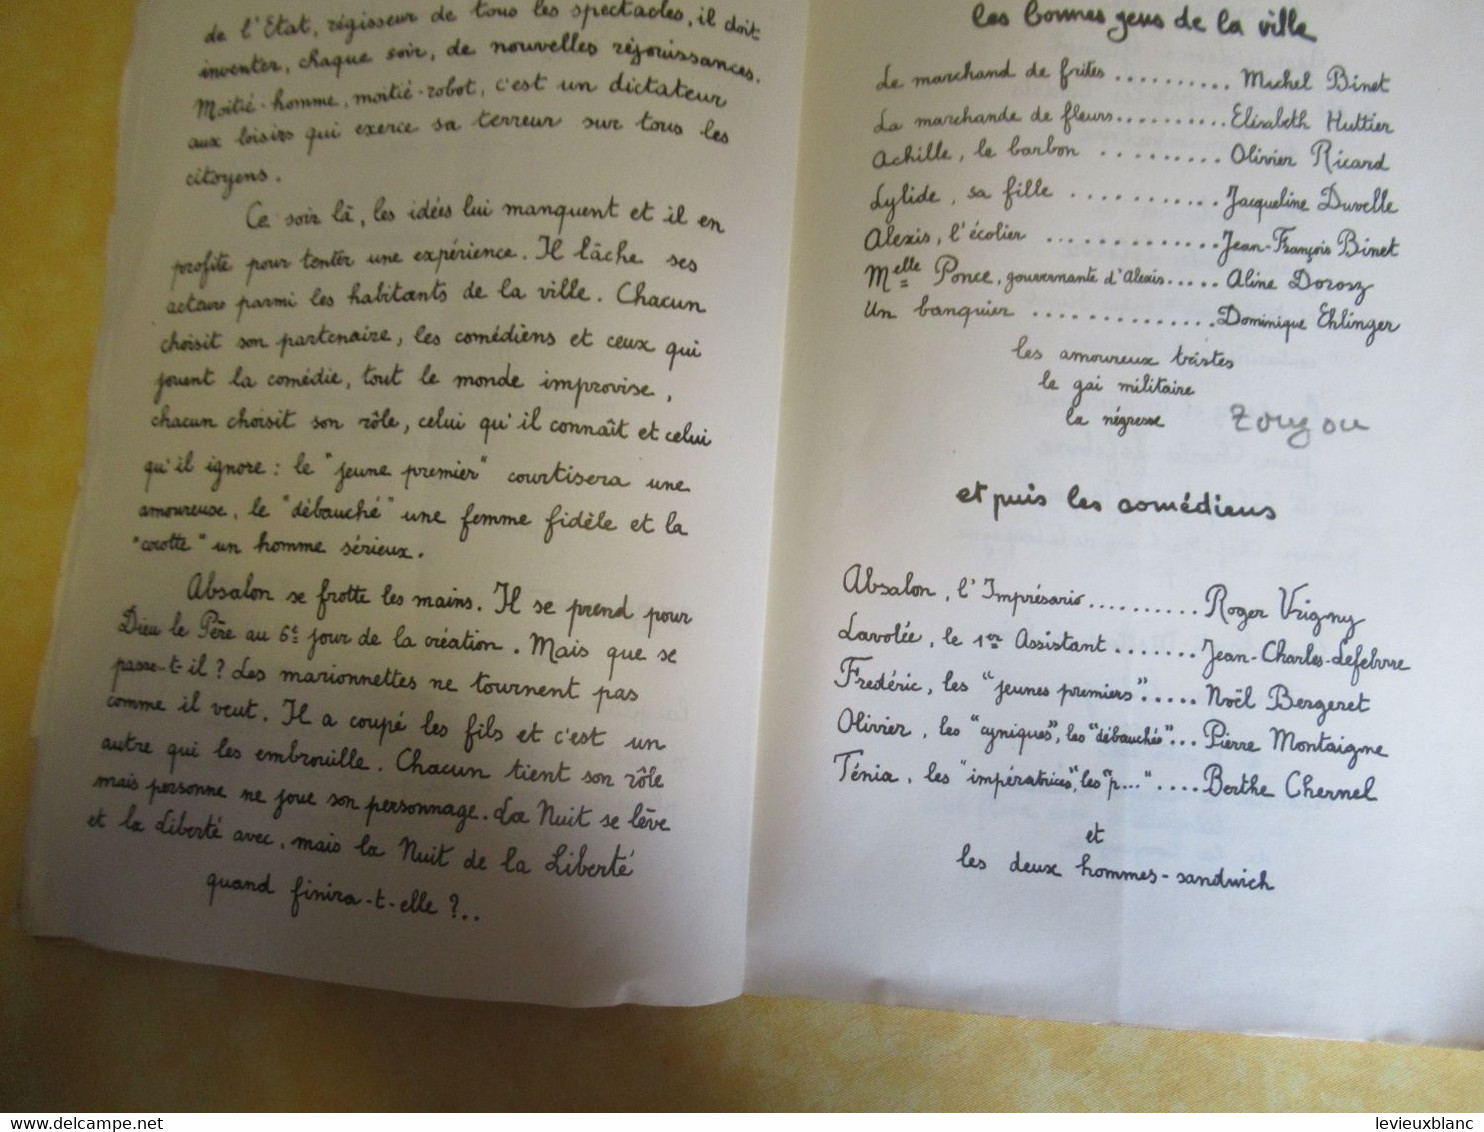 de l'Etat, régisseur de tous les spectacles, il doit
inventer, chaque soir, de nouvelles réjouissances.
Moitié-homme, moitié-robot, c'est un dictateur
aux loisirs qui exerce sa terreur sur tous les
citoyens.
Ce soir là, les idées lui manquent et il en
profite pour tenter une expérience. Il lâche ses
actaire parmi les habitants de la ville. Chacun
choisit son partenaire, les comédiens et ceux qui
jouent la comédie, tout le monde improvise,
chacun choisit son rôle, celui qu'il connaît et celui
qu'il ignore : le "jeune premier" courtisera une
amoureuse, le "débauché" une femme fidèle et la
"cocotte" un homme sérieux.
Absalon se frotte les mains. Il se prend pour
Dieu le Père au 6e jour de la création. Mais que se
passe-t-il ? Les marionnettes ne tournent pas
comme il veut. Il a coupé les fils et c'est un
autre qui les embrouille. Chacun tient son rôle
mais personne ne joue son personnage. La Nuit se lève
et la Liberté avec, mais la Nuit de la Liberté
quand finira-t-elle ?..
les bonnes gens de la ville
Le marchand de frites .......... Michel Binet
La marchande de fleurs .......... Elisabeth Huttier
Achille, le barbon ......... Olivier Ricard
Lylide, sa fille ........... Jacqueline Duvelle
Alexis, l'écolier ............. Jean-François Binet
Melle Ponce, gouvernante d'Alexis..... Aline Dorosz
Un banquier .............. Dominique Ehlinger
les amoureux tristes
le gai militaire
la négresse Zouzou
et puis les comédiens
Absalon, l'Imprésario .......... Roger Vrigny
Lavolée, le 1er Assistant ....... Jean-Charles-Lefebvre
Frédéric, les "jeunes premiers"..... Noël Bergeret
Olivier, les "cyniques", les "débauchés"... Pierre Montaigne
Ténia, les "impératrices", les "p..." .... Berthe Chernel
et
les deux hommes-sandwich
delcampe.net
levieuxblanc